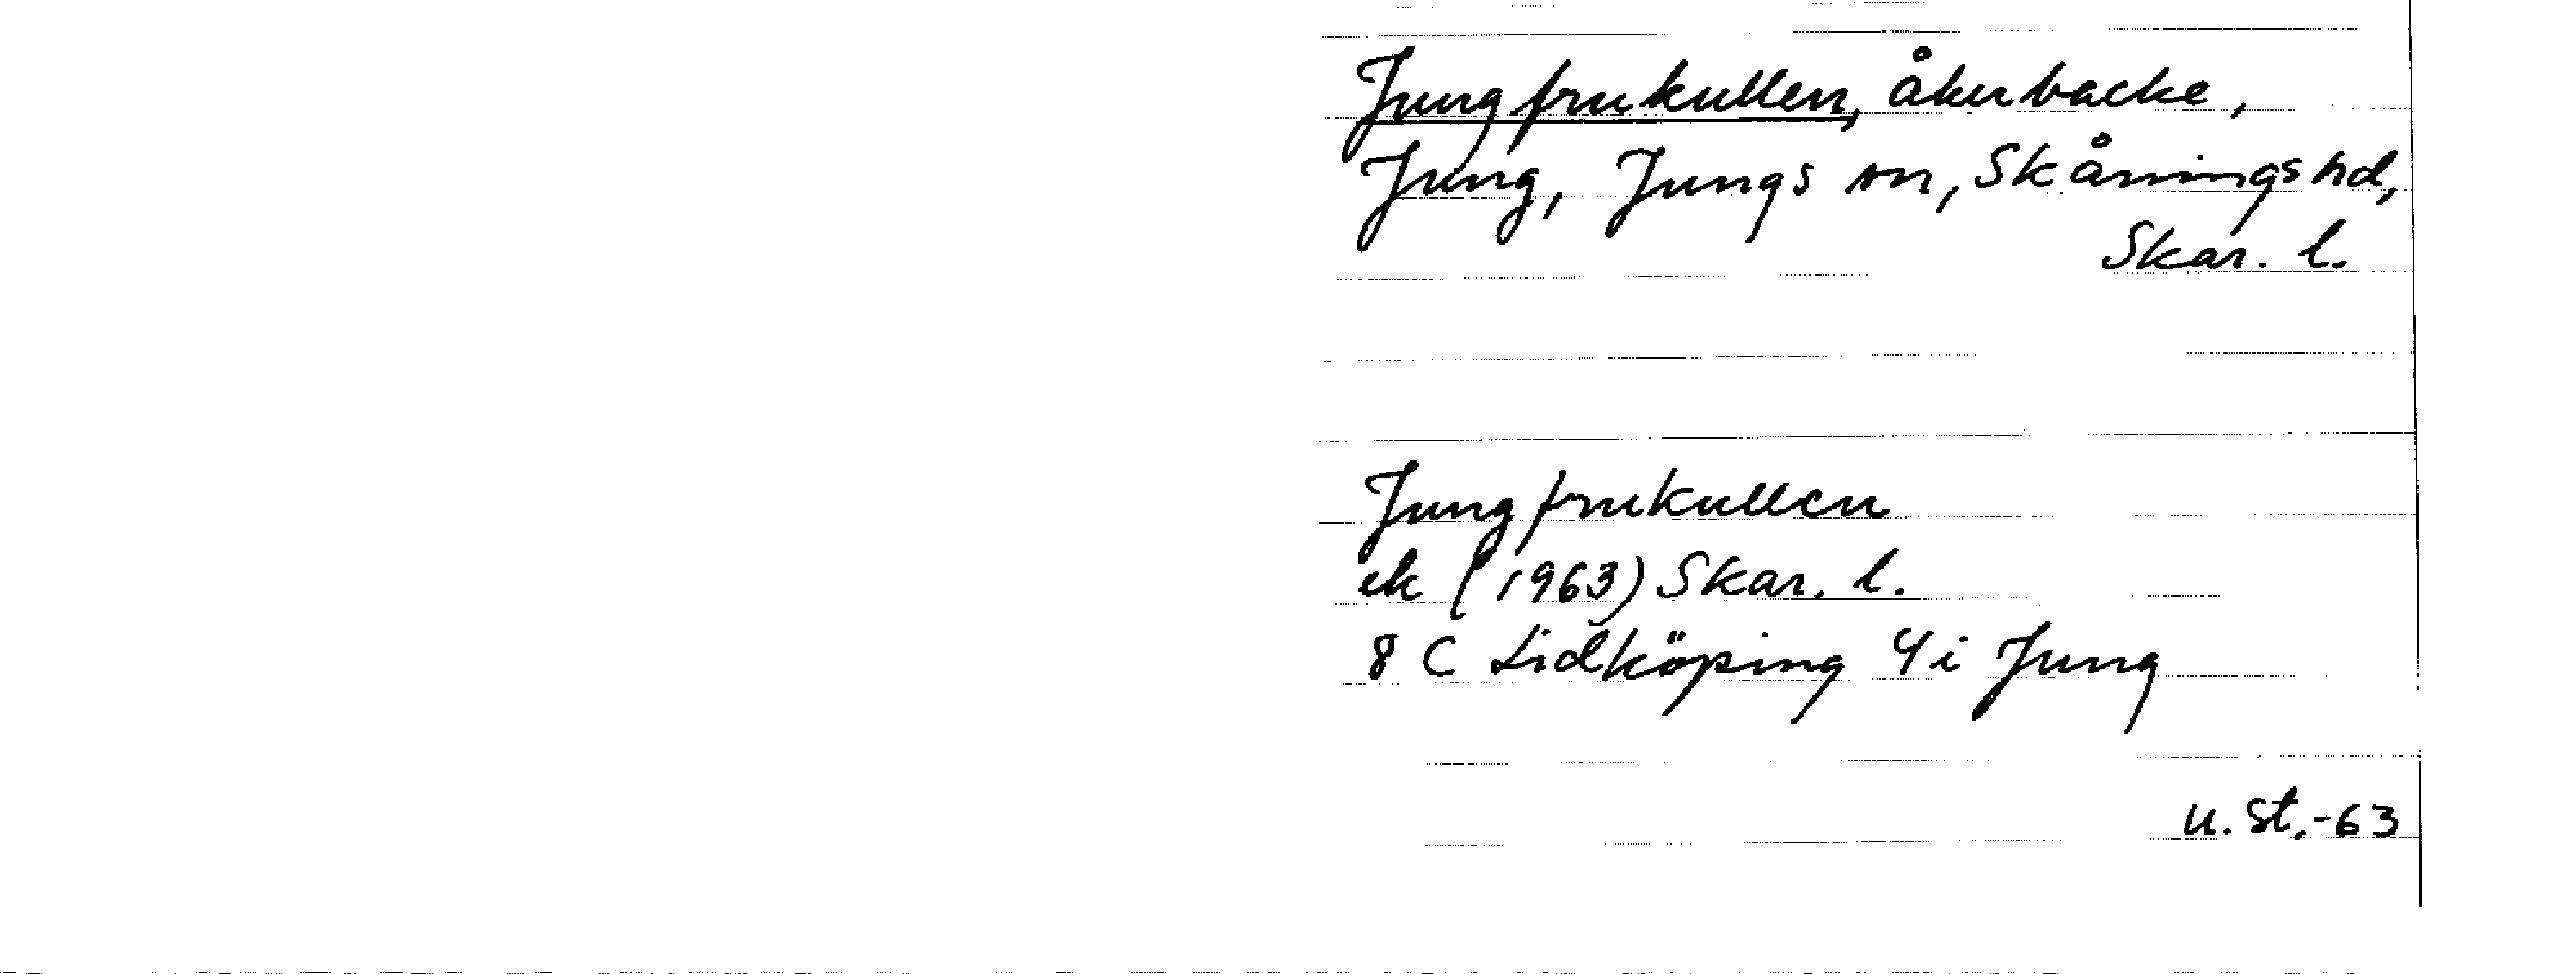 Jungfrukullen, åkerbacke,
Jung, Jungs sn, Skånings hd,
Skar. l.
Jungfrukullen
ek (1963) Skar. l.
8 C Lidköping 4i Jung
u. St.-63